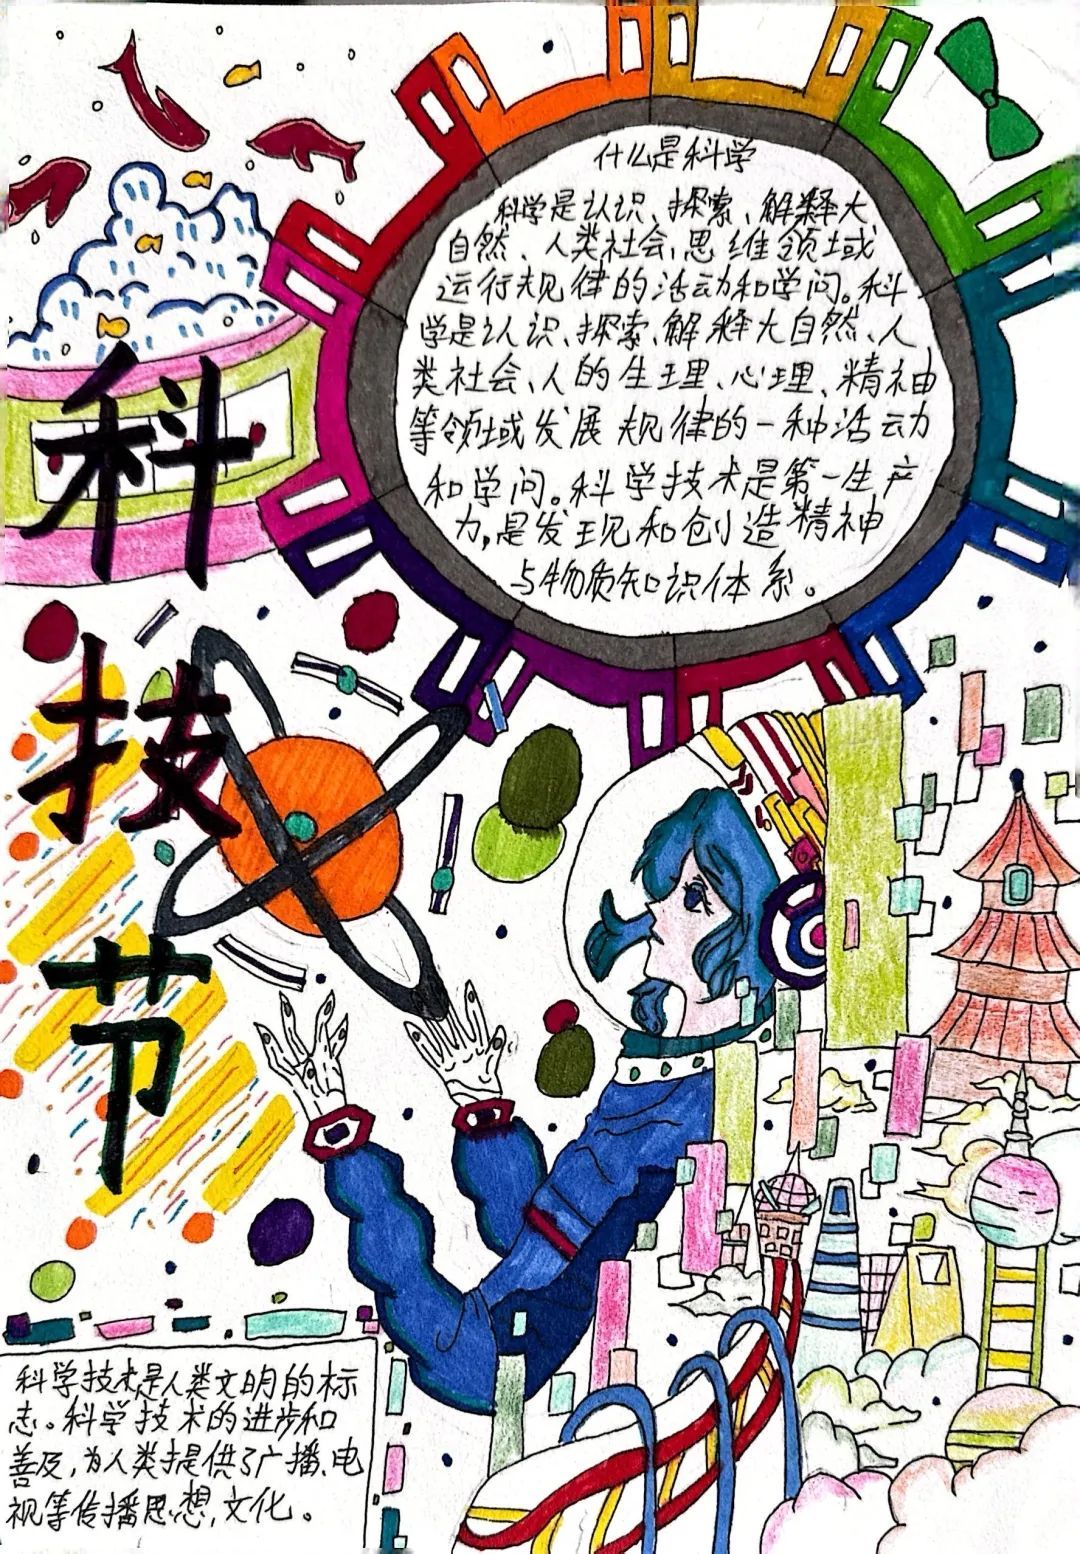 什么是科学
科学是认识、探索、解释大
自然、人类社会,思维领域
运行规律的活动和学问。科
学是认识、探索、解释大自然、人
类社会、人的生理、心理、精神
等领域发展规律的一种活动
和学问。科学技术是第一生产
力,是发现和创造精神
与物质知识体系。
科
技
节
科学技术是人类文明的标
志。科学技术的进步和
善及,为人类提供了广播、电
视等传播思想,文化。